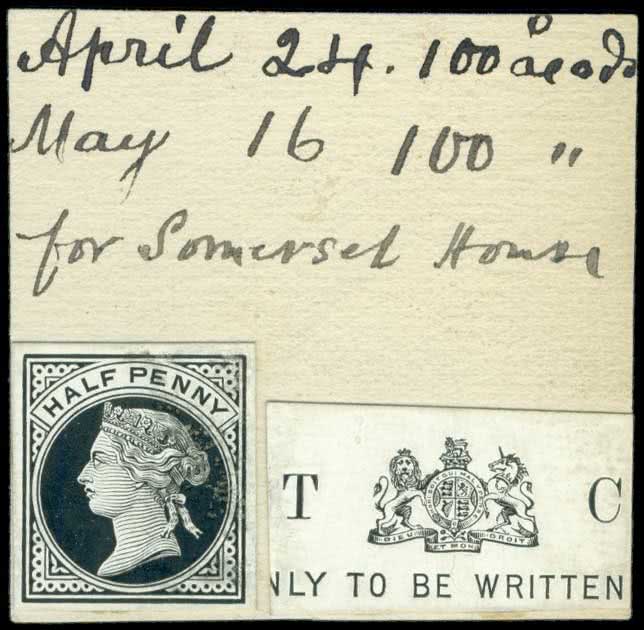 April 24. 100
May 16 100 "
for Somerset House
HALF PENNY
T C
DIEU ET MON DROIT
NLY TO BE WRITTEN